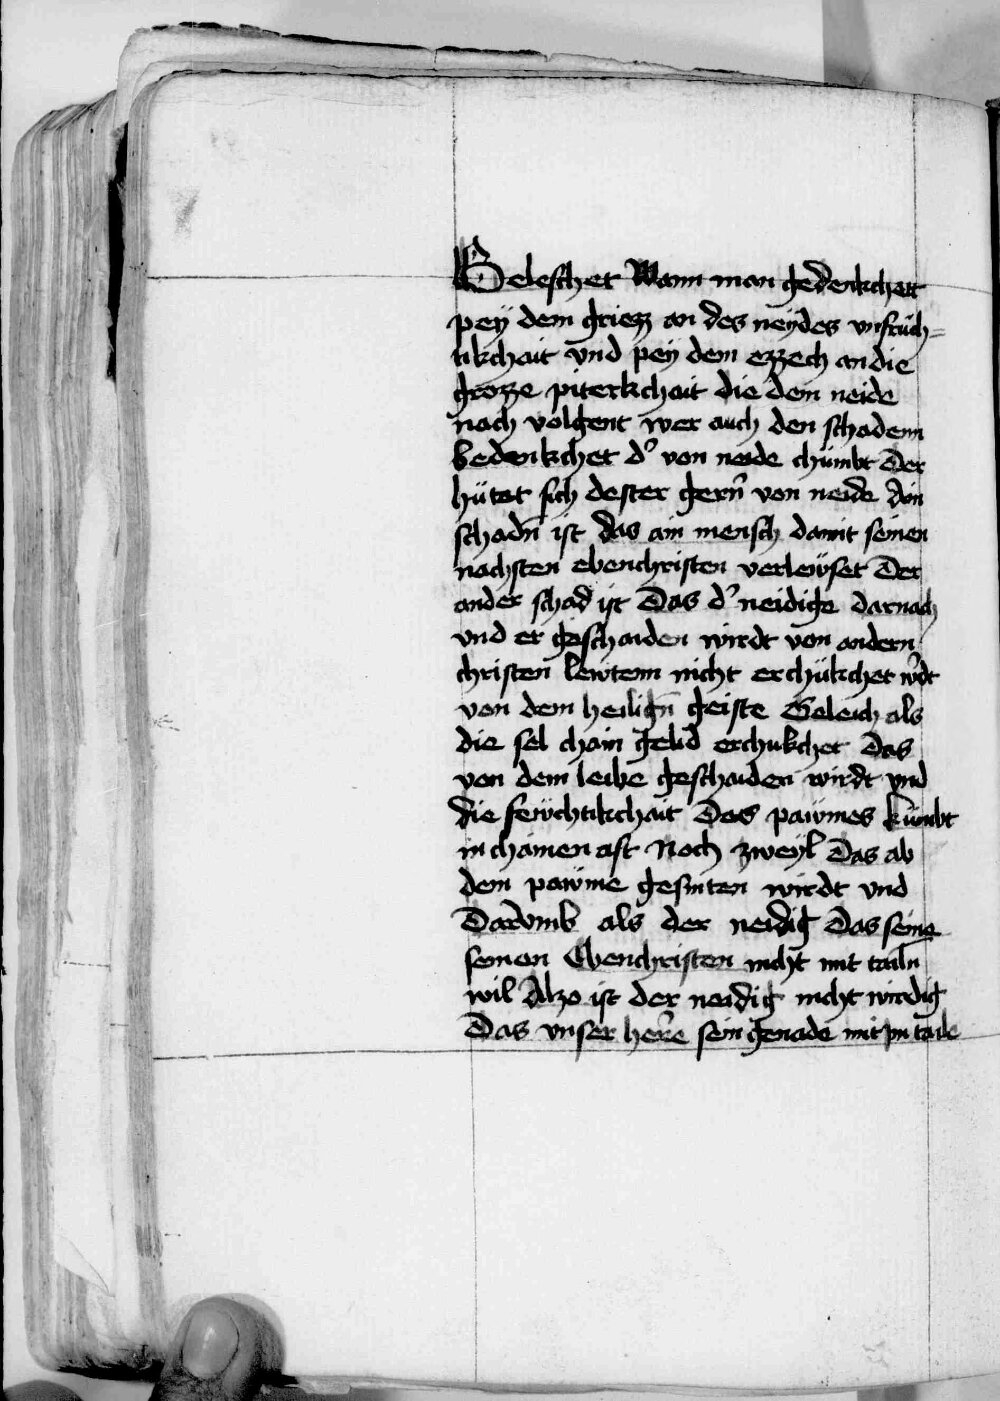 Geleschet Wann man gedenkchett
pey dem griezz an des neydes vnfrüch=
tikchait vnd pey dem ezzech an die
grozze piterkchait die dem neide
nach volgent wer auch den schadenn
bedenkchet d' von neide chümbt Der
hütet sich dester gern̄ von neide Ain
schadn̄ ist das ain mensch damit seinen
nachsten ebenchristen verlewset Der
ander schad ist Das d' neidige darnach
vnd er geschaiden wirdt von andern
christen lewtenn nicht erchükchet w'dt
von dem heilign̄ geiste Geleich als
die sel chain gelid erchukchet Das
von dem leibe geschaiden wirdt vnd
die fewchtikchait Das pawmes kümbt
in chainen ast Noch zweyl Das ab
dem pawme gesniten wirdt vnd
Darvmb als der neidig Das seine
seinen Ebenchristen nicht mit tailn
wil Alzo ist der neidig nicht wirdig
Das vnser her̄e sein genade mit im taile